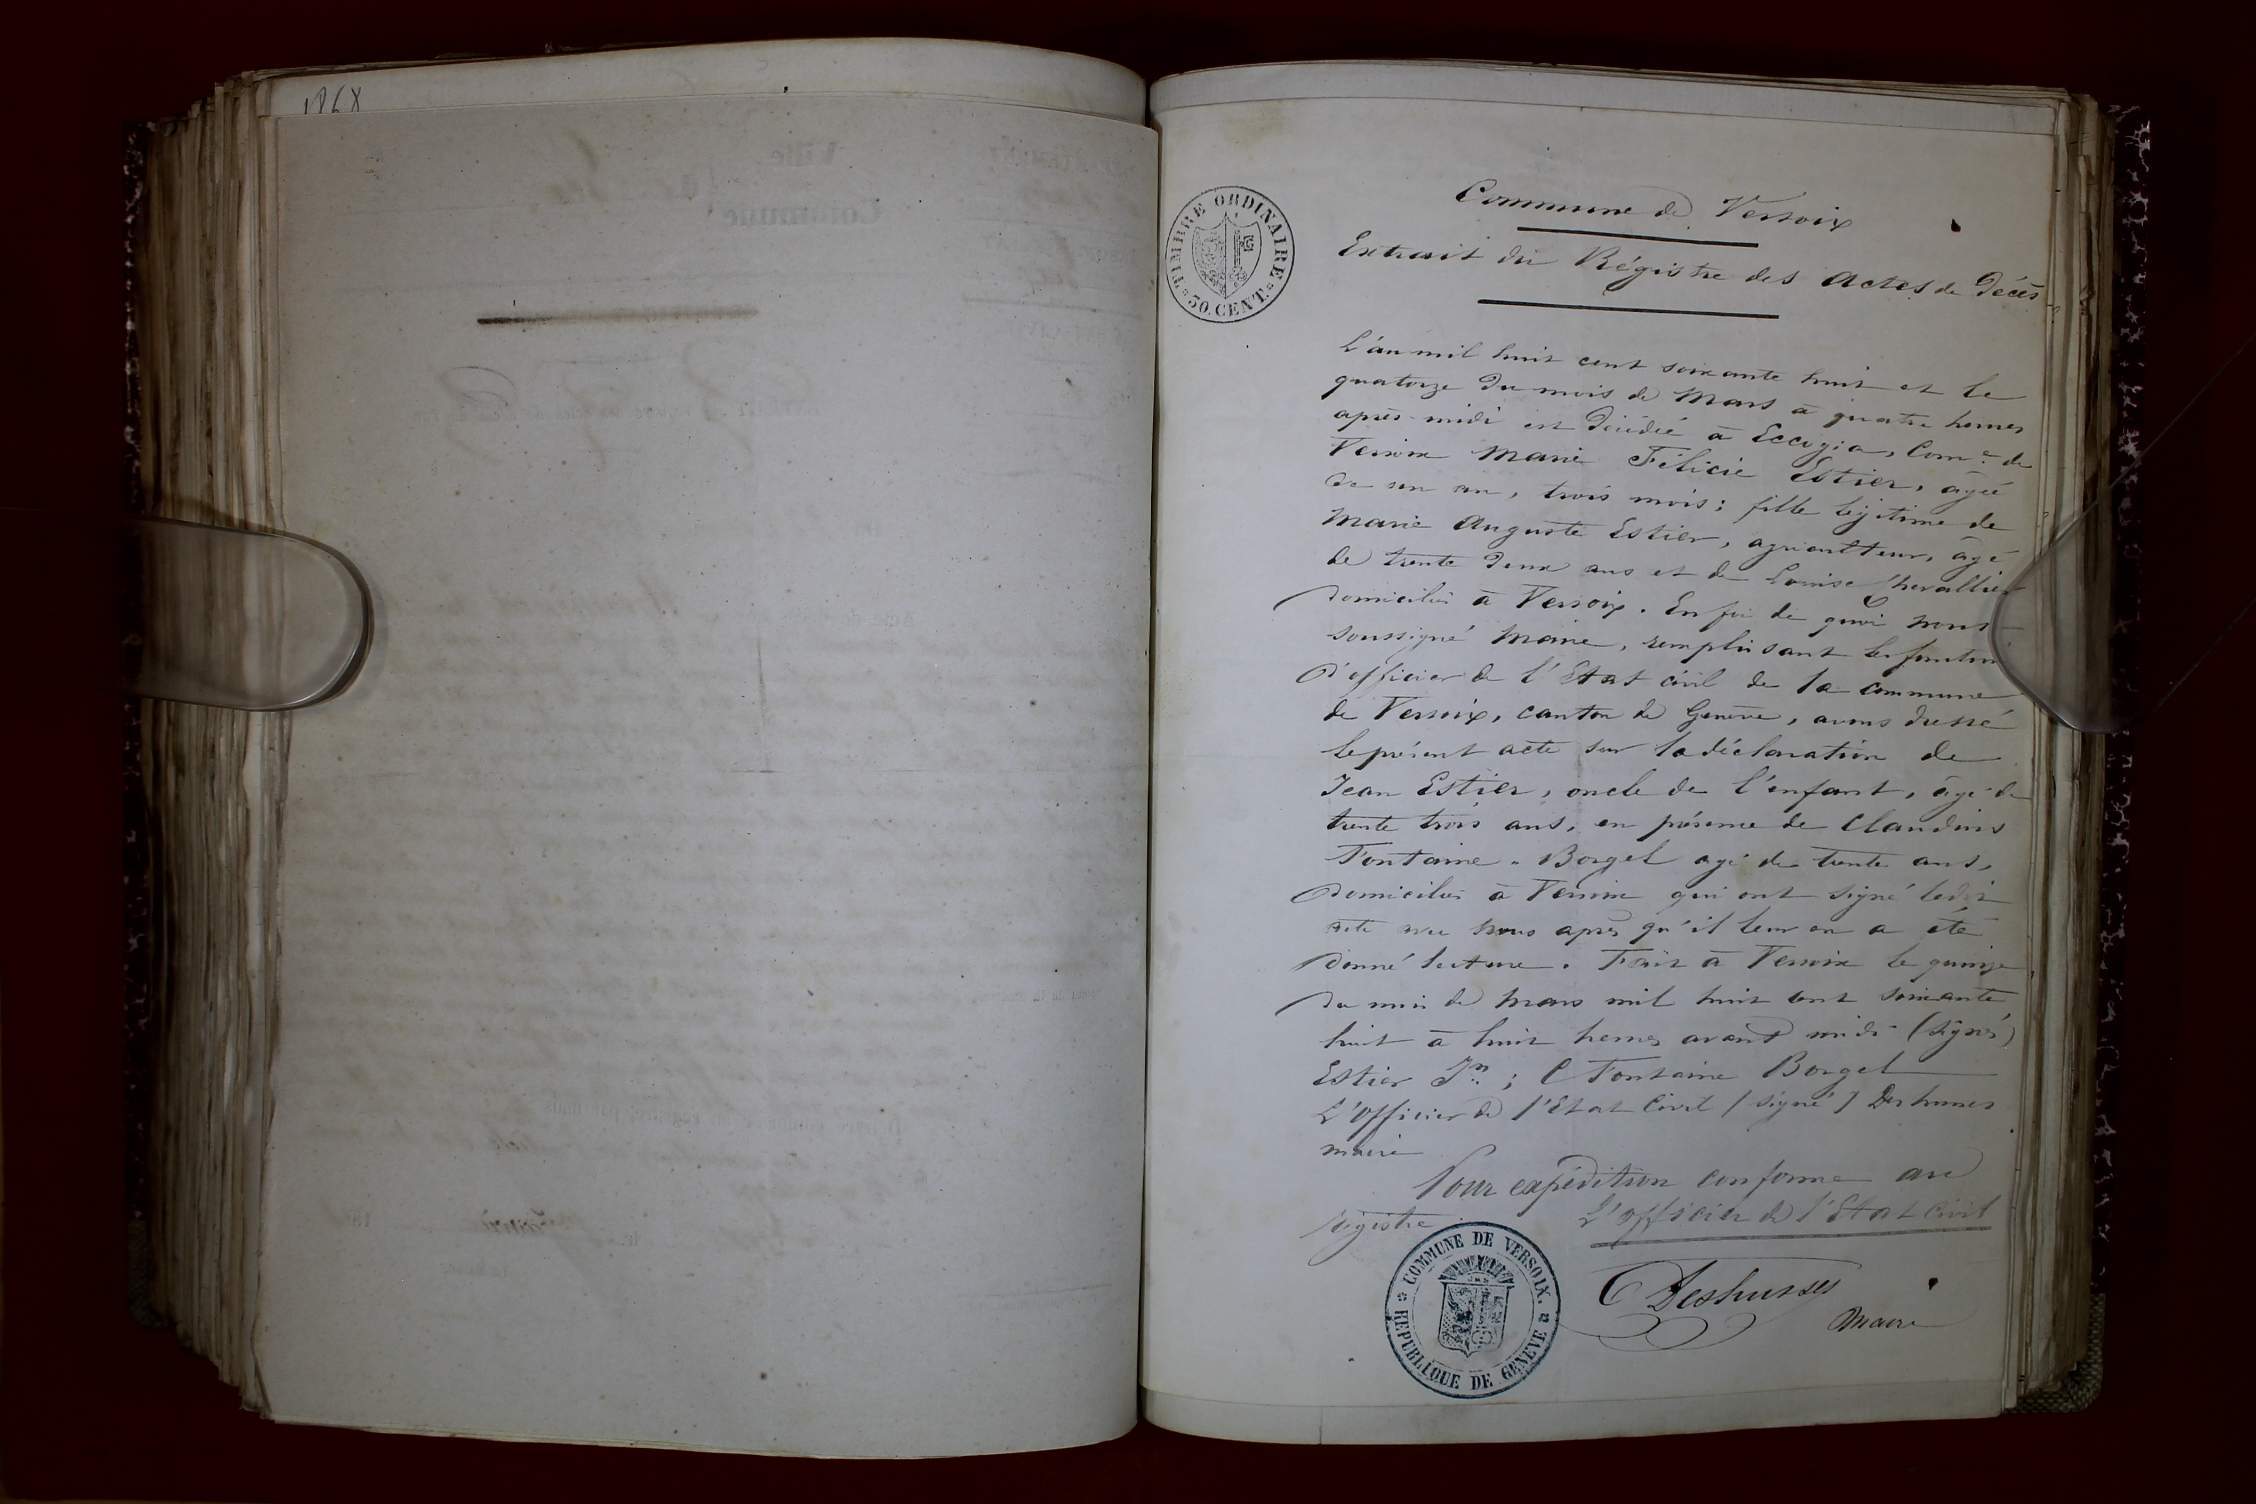 1868
Commune de Versoix
Extrait du Régistre des Actes de Décès
TIMBRE ORDINAIRE
50. CENT.
L'an mil huit cent soixante huit et le
quatorze du mois de Mars à quatre heures
après-midi est décédée à Eccogia, Com.e de
Versoix Marie Félicie Estier, âgée
de un an, trois mois; fille légitime de
Marie Auguste Estier, agriculteur, âgé
de trente deux ans et de Louise Chevallier
domiciliés à Versoix. En foi de quoi nous
soussigné Maire, remplissant les fonctions
d'officier de l'Etat civil de la commune
de Versoix, canton de Genève, avons dressé
le présent acte sur la déclaration de
Jean Estier, oncle de l'enfant, âgé de
trente trois ans, en présence de Claudius
Fontaine-Borgel agé de trente ans,
domiciliés à Versoix qui ont signé ledit
acte avec nous après qu'il leur en a été
donné lecture. Fait à Versoix le quinze
du mois de Mars mil huit cent soixante
huit à huit heures avant midi (signés)
Estier Jn; C Fontaine Borgel
L'officier de l'Etat Civil (signé) Deshusses
maire
Pour expédition conforme au
régistre.
L'officier de l'Etat Civil
COMMUNE DE VERSOIX.
REPUBLIQUE DE GENEVE
C Deshusses
Maire